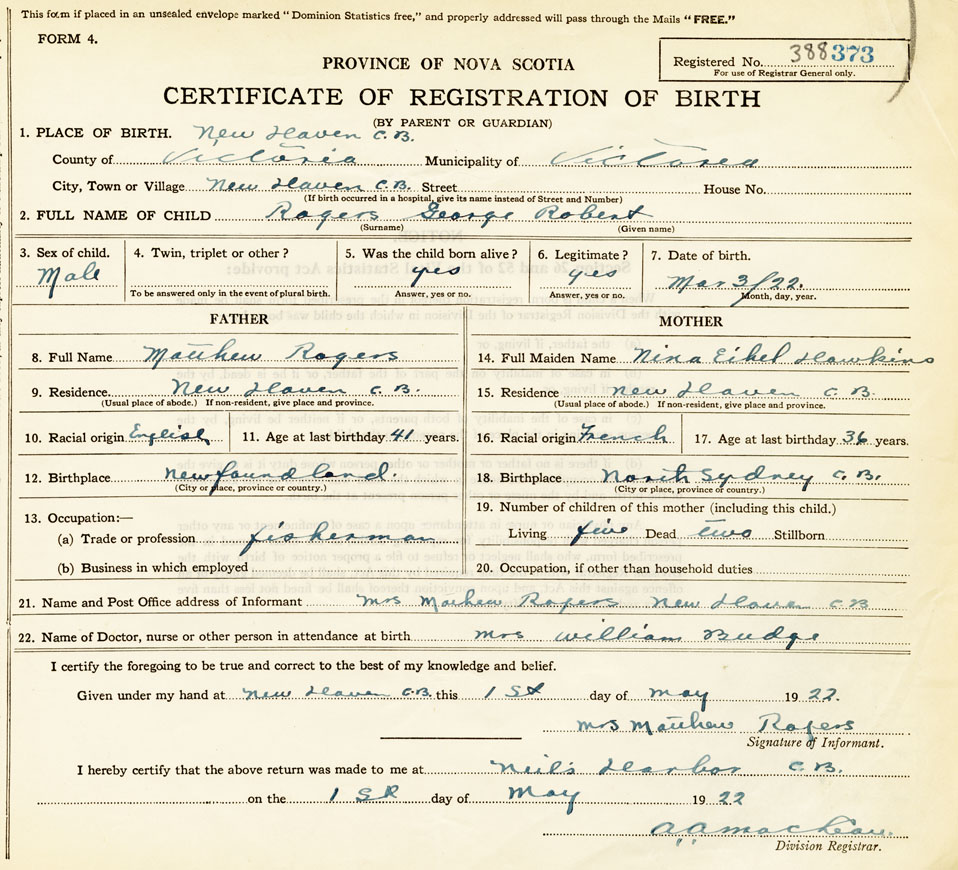 This form if placed in an unsealed envelope marked “Dominion Statistics free,” and properly addressed will pass through the Mails “FREE.”
FORM 4.
Registered No. 388373
For use of Registrar General only.
PROVINCE OF NOVA SCOTIA
CERTIFICATE OF REGISTRATION OF BIRTH
(BY PARENT OR GUARDIAN)
1. PLACE OF BIRTH. New Haven C.B.
County of Victoria Municipality of Victoria
City, Town or Village New Haven C.B. Street House No.
(If birth occurred in a hospital, give its name instead of Street and Number)
2. FULL NAME OF CHILD Rogers George Robert
(Surname) (Given name)
3. Sex of child. 4. Twin, triplet or other? 5. Was the child born alive? 6. Legitimate? 7. Date of birth.
Male yes yes Mar 3/22.
To be answered only in the event of plural birth. Answer, yes or no. Answer, yes or no. Month, day, year.
FATHER MOTHER
8. Full Name Matthew Rogers 14. Full Maiden Name Nina Hawkins
9. Residence New Haven C.B. 15. Residence New Haven C.B.
(Usual place of abode.) If non-resident, give place and province. (Usual place of abode.) If non-resident, give place and province.
10. Racial origin English 11. Age at last birthday 41 years. 16. Racial origin French 17. Age at last birthday 36 years.
12. Birthplace Newfoundland. 18. Birthplace North Sydney C.B.
(City or place, province or country.) (City or place, province or country.)
13. Occupation:— 19. Number of children of this mother (including this child.)
(a) Trade or profession fisherman Living five Dead two Stillborn
(b) Business in which employed 20. Occupation, if other than household duties
21. Name and Post Office address of Informant Mrs Mathew Rogers New Haven C B
22. Name of Doctor, nurse or other person in attendance at birth Mrs William Budge
I certify the foregoing to be true and correct to the best of my knowledge and belief.
Given under my hand at New Haven C.B. this 1 St day of May 1922.
Mrs Matthew Rogers
Signature of Informant.
I hereby certify that the above return was made to me at Neil's Harbor C.B.
on the 1 St day of May 1922
A A MacLean
Division Registrar.